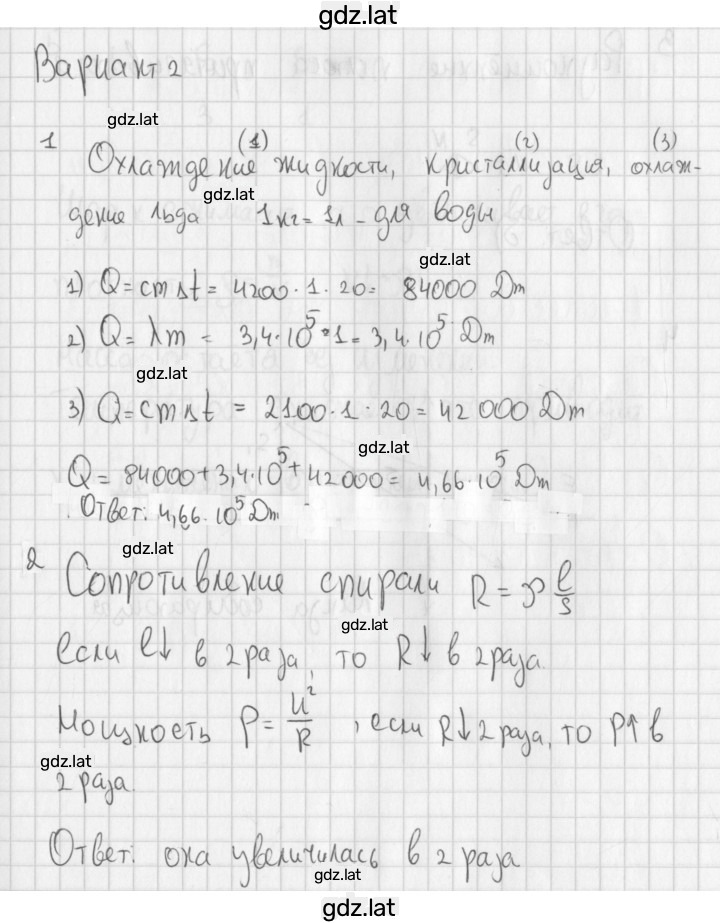 gdz.lat
Вариант 2
gdz.lat
1 (1) (2) (3)
Охлаждение жидкости, кристаллизация, охлаж-
gdz.lat
дение льда 1кг = 1л - для воды
gdz.lat
1) Q = cmΔt = 4200 · 1 · 20 = 84000 Дж
2) Q = λm = 3,4·10⁵ · 1 = 3,4·10⁵ Дж
gdz.lat
3) Q = cmΔt = 2100 · 1 · 20 = 42 000 Дж
gdz.lat
Q = 84000 + 3,4·10⁵ + 42000 = 4,66·10⁵ Дж
Ответ: 4,66·10⁵ Дж
gdz.lat
2 Сопротивление спирали R = ρ l/s
gdz.lat
Если l↓ в 2 раза, то R↓ в 2 раза.
Мощность P = U²/R, если R↓ 2 раза, то P↑ в
gdz.lat
2 раза.
Ответ: она увеличилась в 2 раза
gdz.lat
gdz.lat